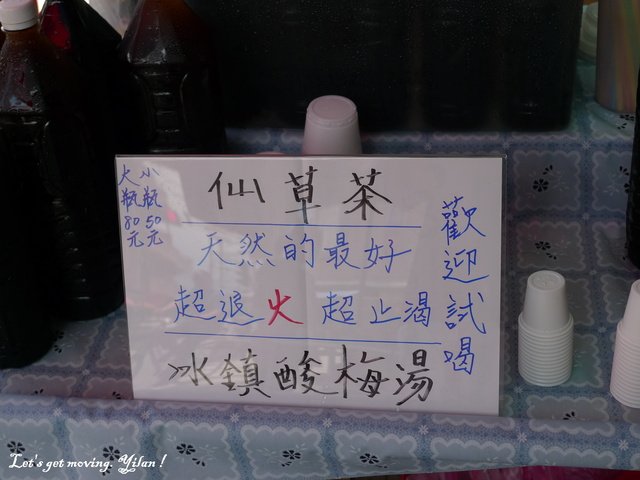 仙草茶
小瓶50元
大瓶80元
天然的最好
超退火 超止渴
冰鎮酸梅湯
歡迎試喝
Let's get moving. Yilan !